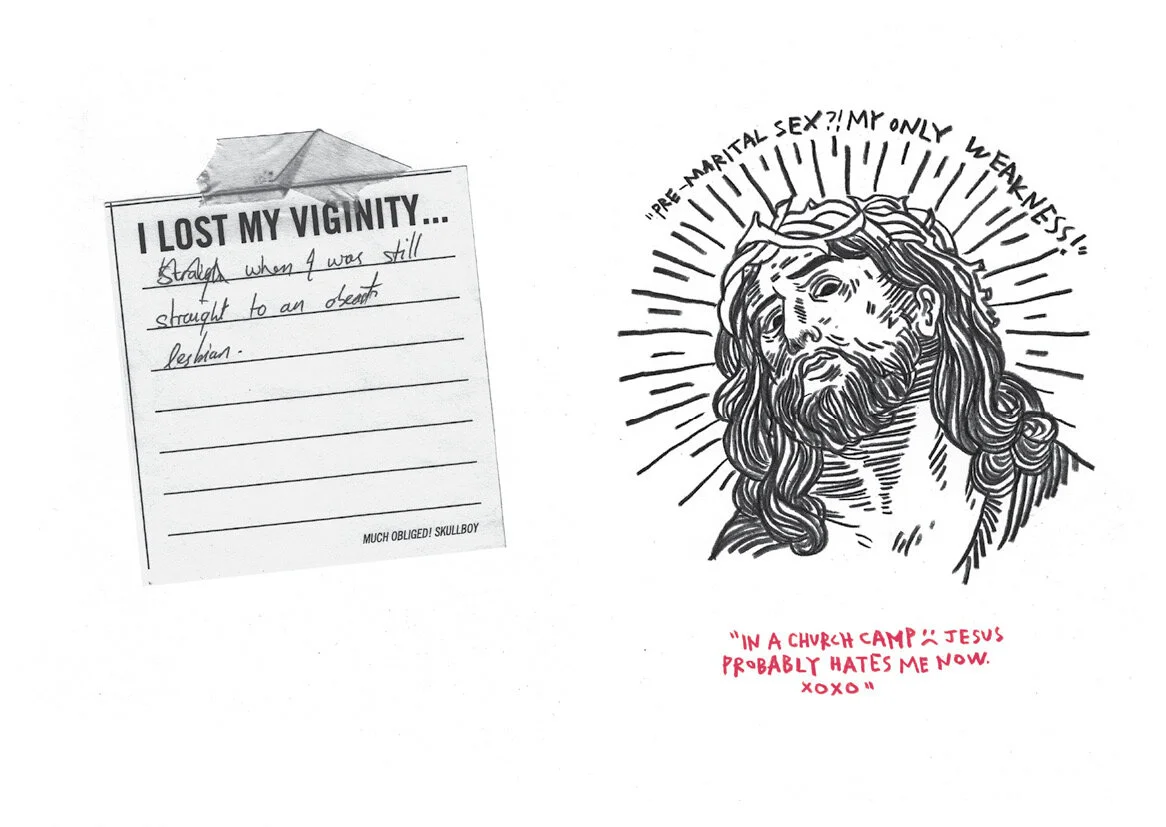 I LOST MY VIGINITY...
when I was still
straight to an
lesbian.
MUCH OBLIGED! SKULLBOY
"PRE-MARITAL SEX?! MY ONLY WEAKNESS!"
"IN A CHURCH CAMP :( JESUS
PROBABLY HATES ME NOW.
XOXO"